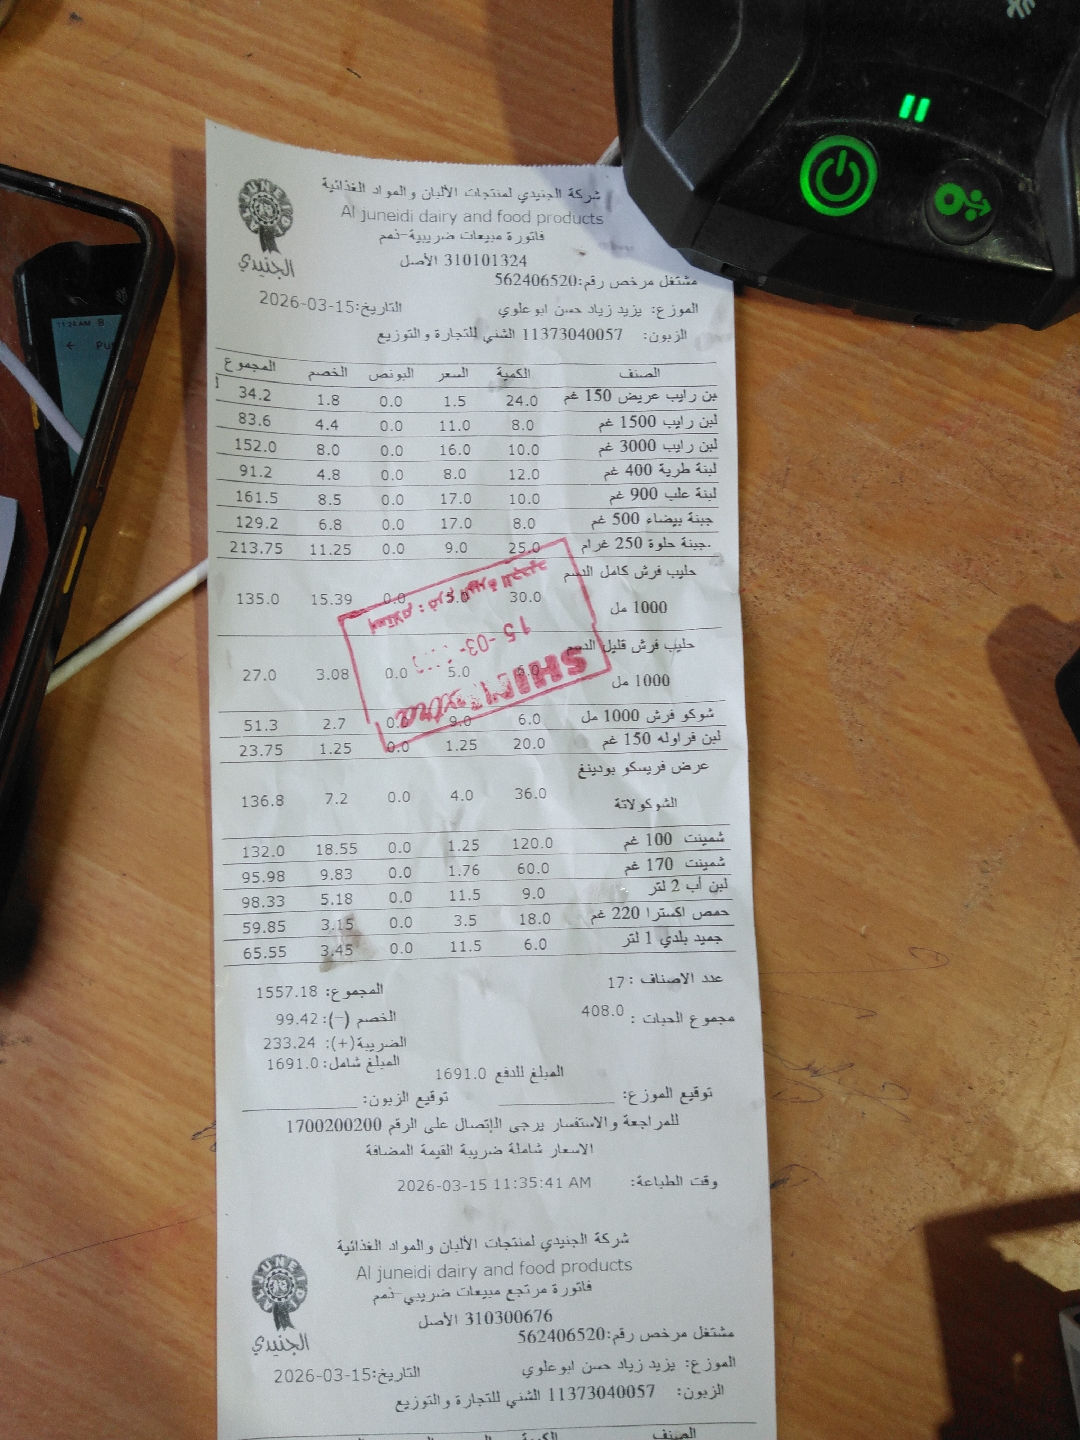 شركة الجنيدي لمنتجات الألبان والمواد الغذائية
Al juneidi dairy and food products
فاتورة مبيعات ضريبية-ذمم
310101324 الأصل
الجنيدي
مشتغل مرخص رقم:562406520
الموزع: يزيد زياد حسن ابو علوي التاريخ:2026-03-15
الزبون: 11373040057 الشني للتجارة والتوزيع
الصنف الكمية السعر البونص الخصم المجموع
بن رايب عريض 150 غم 24.0 1.5 0.0 1.8 34.2
لبن رايب 1500 غم 8.0 11.0 0.0 4.4 83.6
لبن رايب 3000 غم 10.0 16.0 0.0 8.0 152.0
لبنة طرية 400 غم 12.0 8.0 0.0 4.8 91.2
لبنة علب 900 غم 10.0 17.0 0.0 8.5 161.5
جبنة بيضاء 500 غم 8.0 17.0 0.0 6.8 129.2
جبنة حلوة 250 غرام. 25.0 9.0 0.0 11.25 213.75
حليب فرش كامل الدسم
1000 مل 30.0 5.0 0.0 15.39 135.0
حليب فرش قليل الدسم
1000 مل 5.0 0.0 3.08 27.0
شوكو فرش 1000 مل 6.0 9.0 0.0 2.7 51.3
لبن فراوله 150 غم 20.0 1.25 0.0 1.25 23.75
عرض فريسكو بودينغ
الشوكولاتة 36.0 4.0 0.0 7.2 136.8
شمينت 100 غم 120.0 1.25 0.0 18.55 132.0
شمينت 170 غم 60.0 1.76 0.0 9.83 95.98
لبن أب 2 لتر 9.0 11.5 0.0 5.18 98.33
حمص اكسترا 220 غم 18.0 3.5 0.0 3.15 59.85
جميد بلدي 1 لتر 6.0 11.5 0.0 3.45 65.55
15 -03-
extra
عدد الاصناف : 17 المجموع: 1557.18
مجموع الحبات : 408.0 الخصم (-): 99.42
الضريبة(+): 233.24
المبلغ شامل: 1691.0
المبلغ للدفع 1691.0
توقيع الموزع: توقيع الزبون:
للمراجعة والاستفسار يرجى الإتصال على الرقم 1700200200
الاسعار شاملة ضريبة القيمة المضافة
وقت الطباعة: 2026-03-15 11:35:41 AM
شركة الجنيدي لمنتجات الألبان والمواد الغذائية
Al juneidi dairy and food products
فاتورة مرتجع مبيعات ضريبي-ذمم
310300676 الأصل
الجنيدي
مشتغل مرخص رقم:562406520
الموزع: يزيد زياد حسن ابو علوي التاريخ:2026-03-15
الزبون: 11373040057 الشني للتجارة والتوزيع
الصنف الكمية